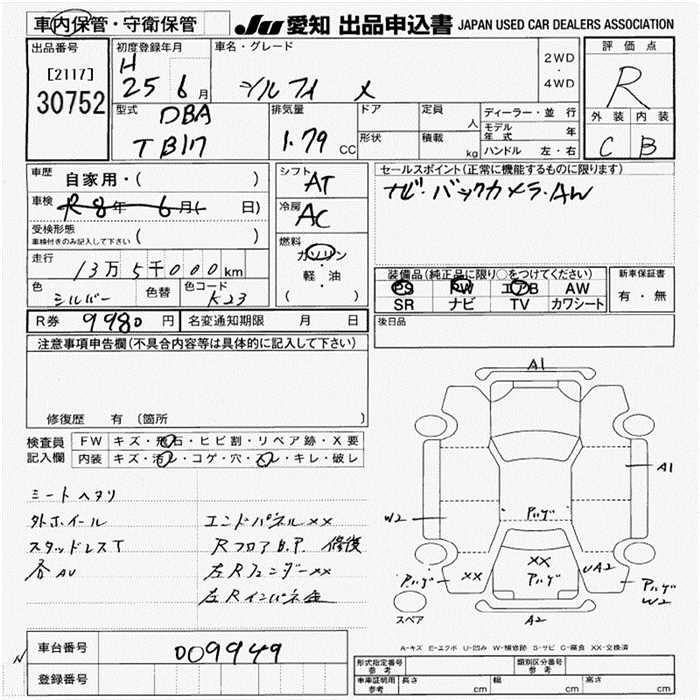 車内保管・守衛保管
JU 愛知 出品申込書 JAPAN USED CAR DEALERS ASSOCIATION
出品番号
[2117]
30752
初度登録年月
H
25 6 月
車名・グレード
シルフィ
2WD
・
4WD
評価点
R
外装 内装
C B
型式
DBA
TB17
排気量
1.79 CC
ドア
形状
定員
人
積載
kg
ディーラー・並行
モデル年式 年
ハンドル 左・右
車歴
自家用・( )
車検
R8年 6月( 日)
受検形態
車検付きのみ記入して下さい ( )
走行
13万5千000km
色
シルバー
色替
色コード
K23
シフト
AT
冷房
AC
燃料
ガソリン
・
軽・油
( )
セールスポイント(正常に機能するものに限ります)
ナビ・バックカメラ・AW
装備品(純正品に限り○をつけてください)
PS PW エアB AW
SR ナビ TV カワシート
新車保証書
有・無
R券 9980 円
名変通知期限 月 日
後日品
注意事項申告欄(不具合内容等は具体的に記入して下さい)
修復歴 有 (箇所 )
検査員
記入欄
FW キズ・飛石・ヒビ割・リペア跡・X要
内装 キズ・汚レ・コゲ・穴・スレ・キレ・破レ
シートヘタリ
外ホイール
スタッドレスT
各AU
エンドパネルXX
RフロアB.P. 修復
左RフェンダーXX
左Rインパネ
A1
A1
W2
XX
XX
UA2
W2
A2
スペア
A-キズ E-エクボ U-凹み W-補修跡 S-サビ C-腐食 XX-交換済
N
車台番号 009949
登録番号
形式指定番号
参考
類別区分番号
参考
車庫証明用
参考
長さ cm
幅 cm
高さ cm